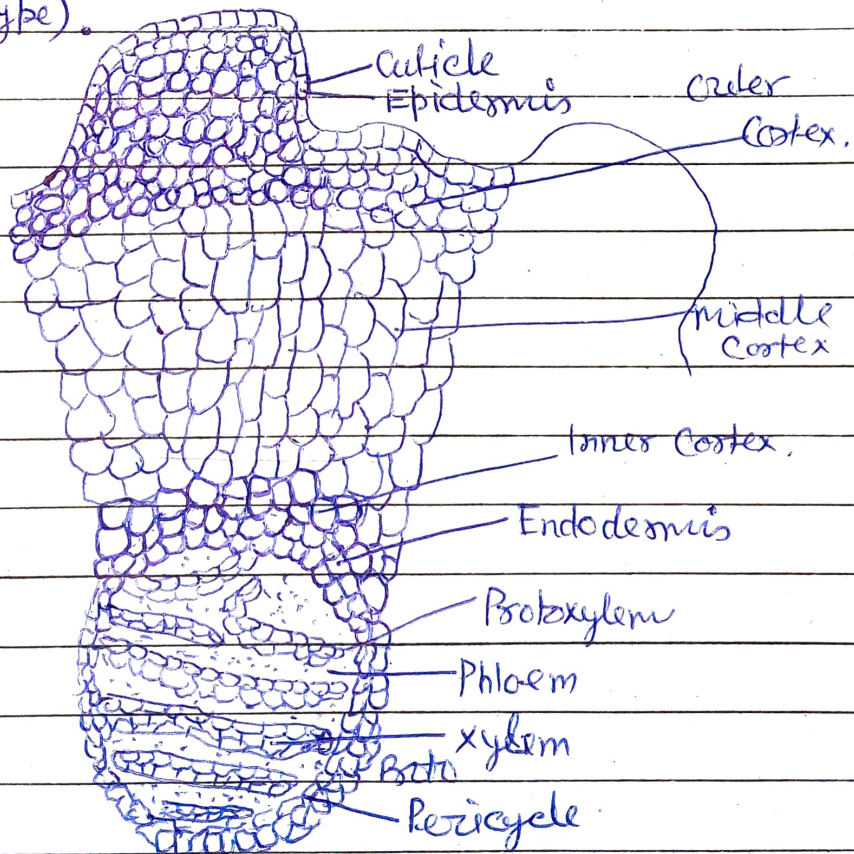 ype).
Cuticle
Epidermis
Outer
Cortex.
Middle
Cortex
Inner Cortex.
Endodermis
Protoxylem
Phloem
Xylem
Pericycle